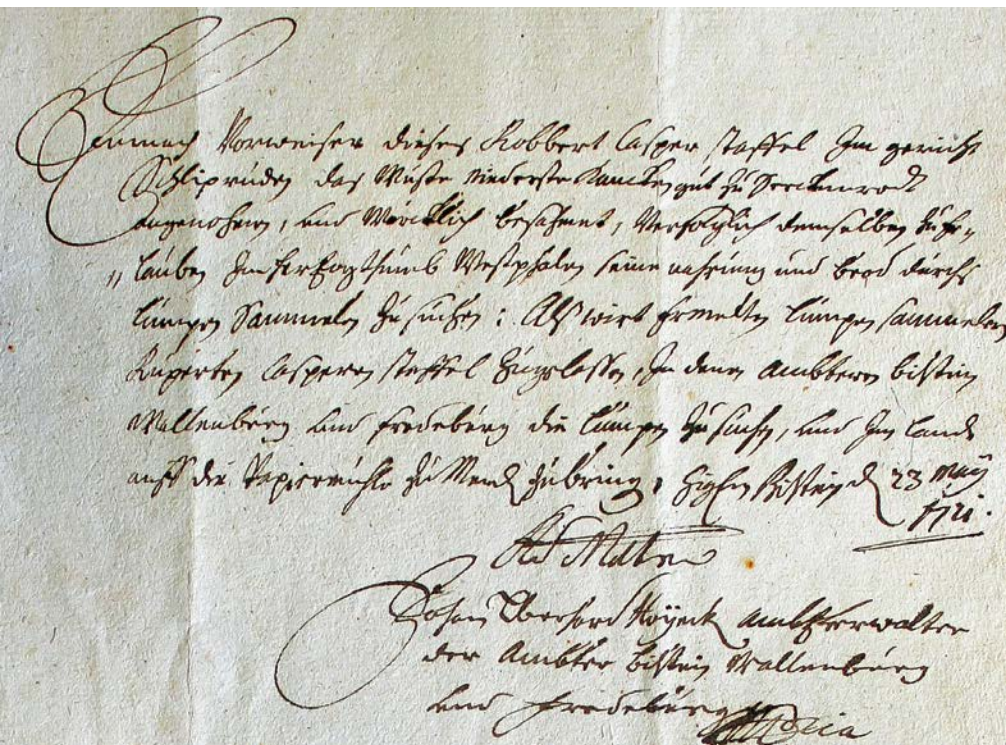 Demnach Vorweiser dieses Robbert Casper Staffel Jm gericht
Schliprüden das Wüste niederste gut zu
angenohmen, und Würcklich besahmet, demselben zu Er„
„lauben Jm Herzogthumb Westphalen seine nahrung und brod durchs
Lumpen Sammelen zu suchen; Alß wirt Ermelten Lumpen sammeleren
Ruperten Casperen Staffel zugelassen, Jn denen Ambteren bilstein
Wallenberg und fredeburg die Lumpen zu suchen, und Jm Landt
auff die Papiermühle zu bringen, Bilstein d 23 Maij
1721.
Johan Eberhard Höynck Ambtsverwalter
der Ambter bilstein Wallenberg
und fredeburg